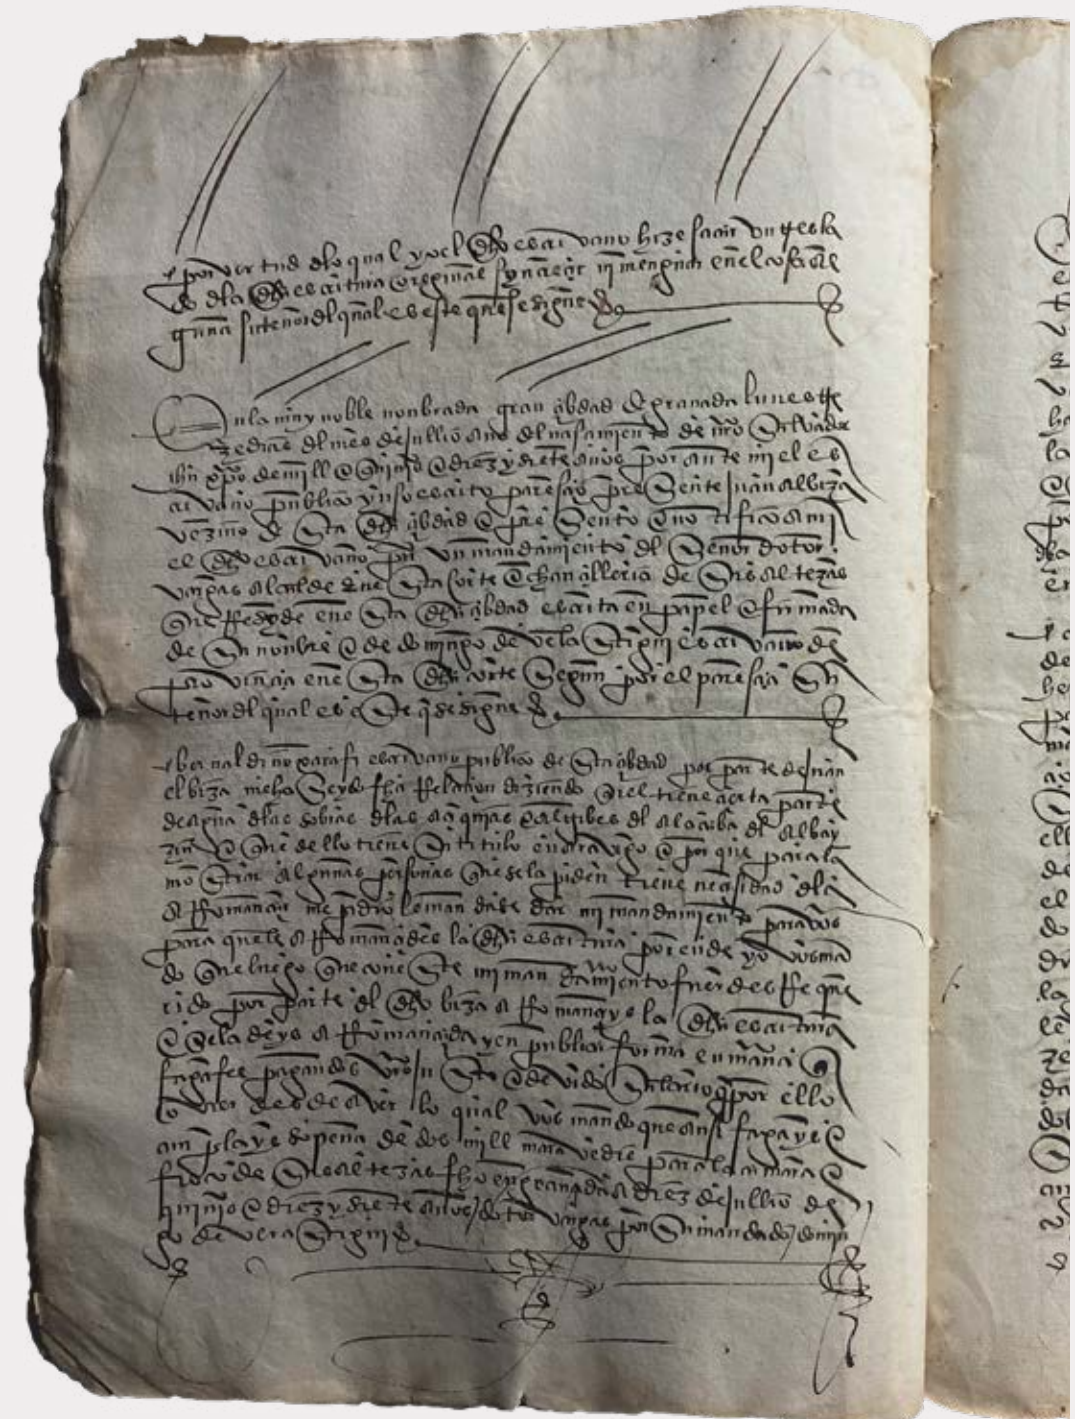 por vertud dlo qual yo el dho escriuano hize sacar vn tresla
do dla dha escritura oreginal syn acreçer ni menguar en ella cosa al
guna su tenor dl qual es este que se sigue
En la muy noble nonbrada gran çibdad de granada lunes tre
ze dias dl mes de jullio año dl nasçimiento de nro Saluador
ihu xpo de mill e quinios e diez y siete años por ante mi el es
criuano publico yuso escrito paresçio presente juan albiza
vezino de esta dha çibdad e presento e notifico a mi
el dho escriuano vn mandamiento dl Señor dotor
vargas alcalde en esta corte e chançilleria de Sus altezas
que Resyde en esta dha çibdad escrita en papel e firmada
de su nonbre e de domingo de escriuano de
prouinçia en esta dha corte Segun por el paresçia Su
tenor dl qual es este q se sigue
xarafi escriuano publico de esta çibdad por parte de juan
el biza me ha Seydo fha Relaçion diziendo quel tiene çierta parte
de agua dlas sobras dlas açequias e algibes dl alcaçaba dl albay
zin e que dello tiene Su titulo en aravigo e por que para la
mostrar algunas personas que se la piden tiene neçesidad dla
a Romançar me pidio le mandase dar mi mandamiento para vos
para que le a Romançades la dha escritura por ende yo vos man
do que luego que con este mi mandamiento fuerdes Reque
rido por parte dl dho biza a Romançeys la dha escritura
e se la deys a Romançada y en publica forma en manera q
faga fee pagandos vro justo e devido Salario q por ello
ovierdes de aver lo qual vos mando que ansi fagays e
cunplays so pena de dos mill maravedis para la camara e
fisco de Sus altezas fho en granada a diez de jullio de
quinios e diez y siete años dotor vargas por Su mandado domin
go de